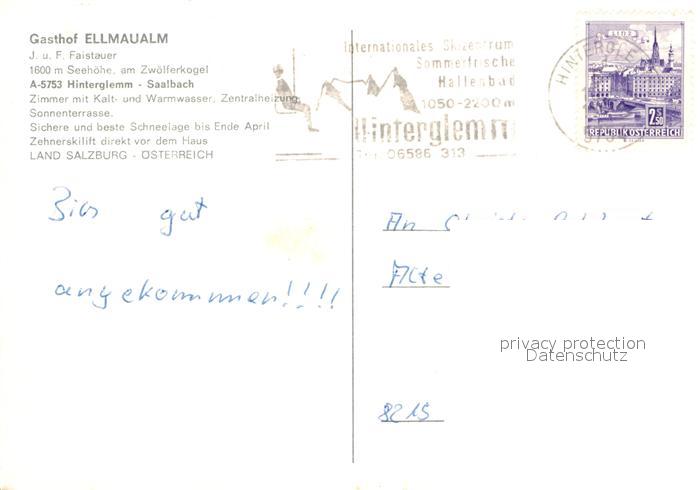 Gasthof ELLMAUALM
J. u. F. Faistauer
1600 m Seehöhe, am Zwölferkogel
A-5753 Hinterglemm - Saalbach
Zimmer mit Kalt- und Warmwasser, Zentralheizung
Sonnenterrasse.
Sichere und beste Schneelage bis Ende April
Zehnerskilift direkt vor dem Haus
LAND SALZBURG - ÖSTERREICH
Internationales Skizentrum
Sommerfrische
Hallenbad
1050-2200m
Hinterglemm
Tel. 06586 313
HINTERGLE
LINZ
2.50
REPUBLIK ÖSTERREICH
gut
angekommen!!!!
An
8215
privacy protection
Datenschutz